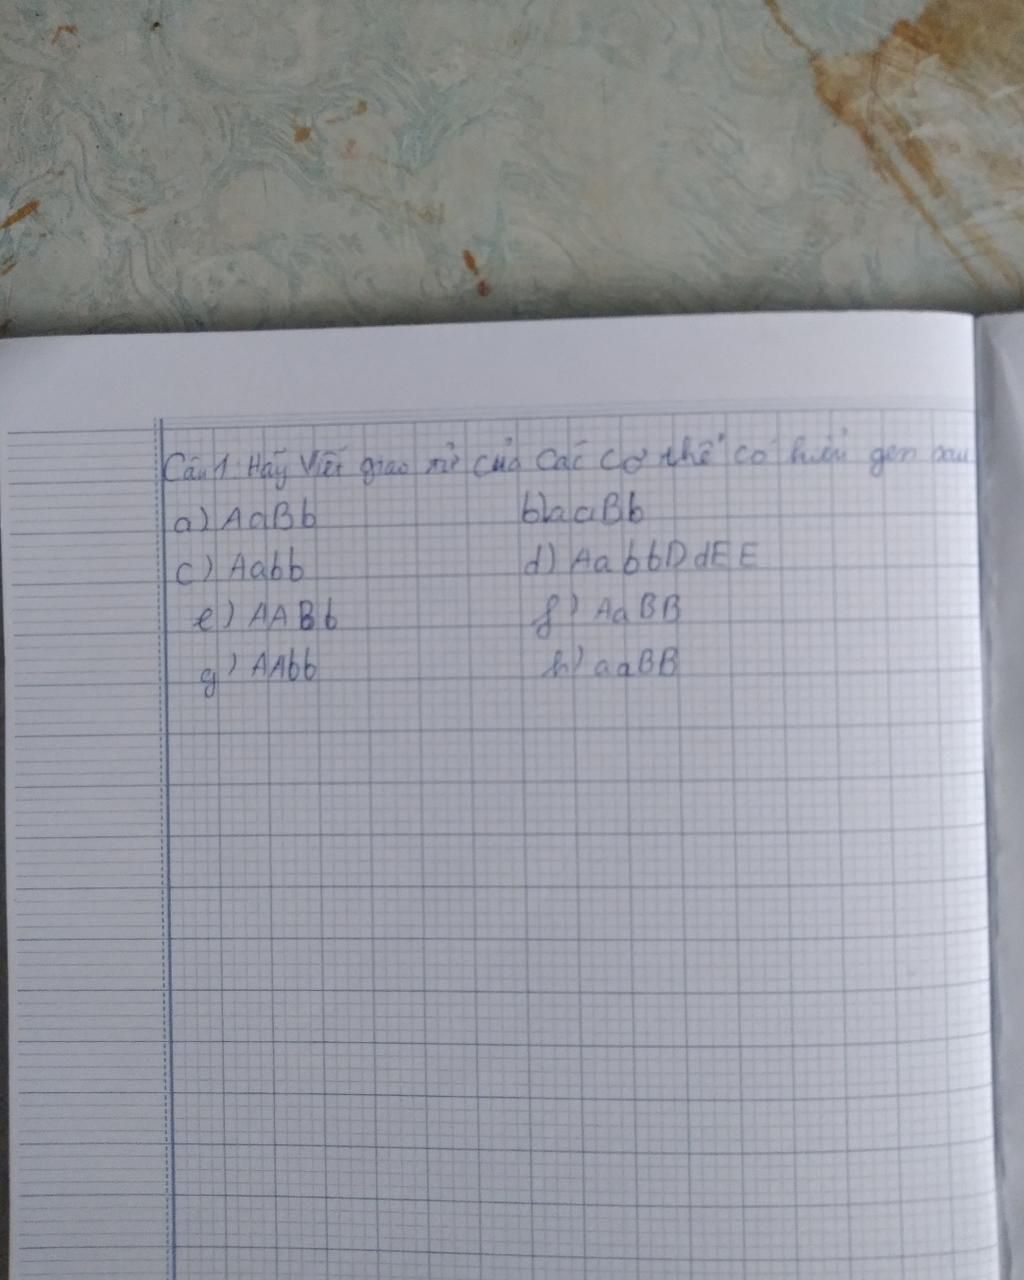 Câu 1: Hãy Viết giao tử của các cơ thể có kiểu gen sau
a) AaBb b) aaBb
c) Aabb d) AabbDdEE
e) AABb f) AaBB
g) AAbb h) aaBB